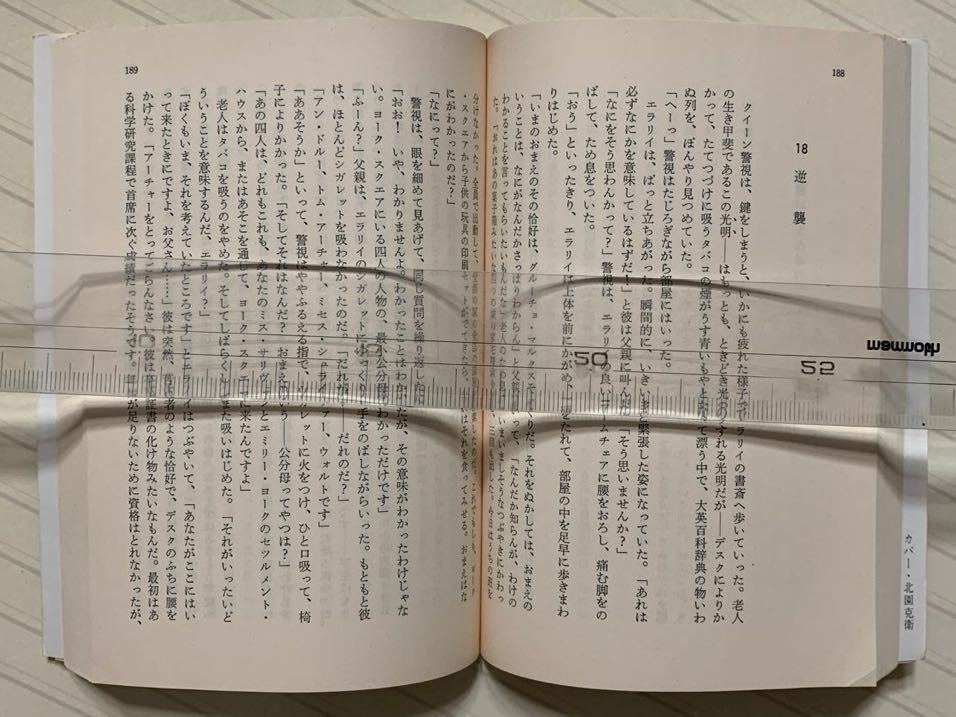 188
18 逆襲
クイーン警視は、鍵をしまうと、いかにも疲れた様子で、エラリイの書斎へ歩いていった。老人
の生き甲斐であるこの光明――はもっとも、ときどき光の うすれる光明だが――デスクによりか
かって、たてつづけに吸うタバコの煙がうす青いもやとなって漂う中で、大英百科辞典の物いわ
ぬ列を、ぼんやり見つめていた。
「へーっ」警視はたじろぎながら部屋にはいった。
エラリイは、ぱっと立ちあがった。瞬間的に、いきいきと緊張した姿になっていた。「あれは
必ずなにかを意味しているはずだ!」と彼は父親に叫んだ。「そう思いませんか?」
「なにをそう思わんかって?」警視は、エラリイの良いアームチェアに腰をおろし、痛む脚をの
ばして、ため息をついた。
「おう」といったきり、エラリイは上体を前にかがめ、 たれて、部屋の中を足早に歩きまわ
りはじめた。
「いまのおまえのその恰好は、グルーチョ・マルクスそっくりだ。それをぬかしては、おまえの
いうことは、なにがなんだかさっぱりわからん」と父親 いって、「なんだか知らんが、わけの
わかることを言ってもらいたいもんだな」老人のため息 いまいましそうなつぶやきにかわっ
た。
分けなかった。全員で出動して、
・スクエアから子供の玩具の印刷セットがでてきたら、 いはそれを食ってみせる。おまえはな
にがわかったのだ?」
189
「なにって?」
警視は、眼を細めて見あげて、同じ質問を繰り返した。
「おお! いや、わかりませんよ。わかったことはわかったが、その意味がわかったわけじゃな
い。ヨーク・スクエアにいる四人の人物の、最小公分母がわかっただけです」
「ふーん?」父親は、エラリイのシガレットにゆっくり手をのばしながらいった。もともと彼
は、ほとんどシガレットを吸わなかったのだ。「だれが――だれのだ?」
「アン・ドルー、トム・アーチャー、ミセス・シュライヴァー、ウォルトです」
「ああそうか」といって、警視はややふるえる指で、シガレットに火をつけ、ひと口吸って、椅
子によりかかった。「そしてそれはなんだ? おまえのいう――公分母ってやつは?」
「あの四人は、どれもこれも、あなたのミス・サリヴァンとエミリー・ヨークのセツルメント・
ハウスから、またはあそこを通じて、ヨーク・スクエアに来たんですよ」
老人はタバコを吸うのをやめた。そしてしばらくしてまた吸いはじめた。「それがいったいど
ういうことを意味するんだ、エラリイ?」
「ぼくもいま、それを考えていたところです」とエラリイはつぶやいて、「あなたがここにはい
って来たときにですよ、お父さん……」彼は突然、 者のような恰好で、デスクのふちに腰を
かけた。「アーチャーをとってごらんなさい。彼は 証書の化け物みたいなもんだ。最初はあ
る科学研究課程で首席に次ぐ成績だったそうです。 が足りないために資格はとれなかったが、
カバー・北園克衛
mammoth
50
52